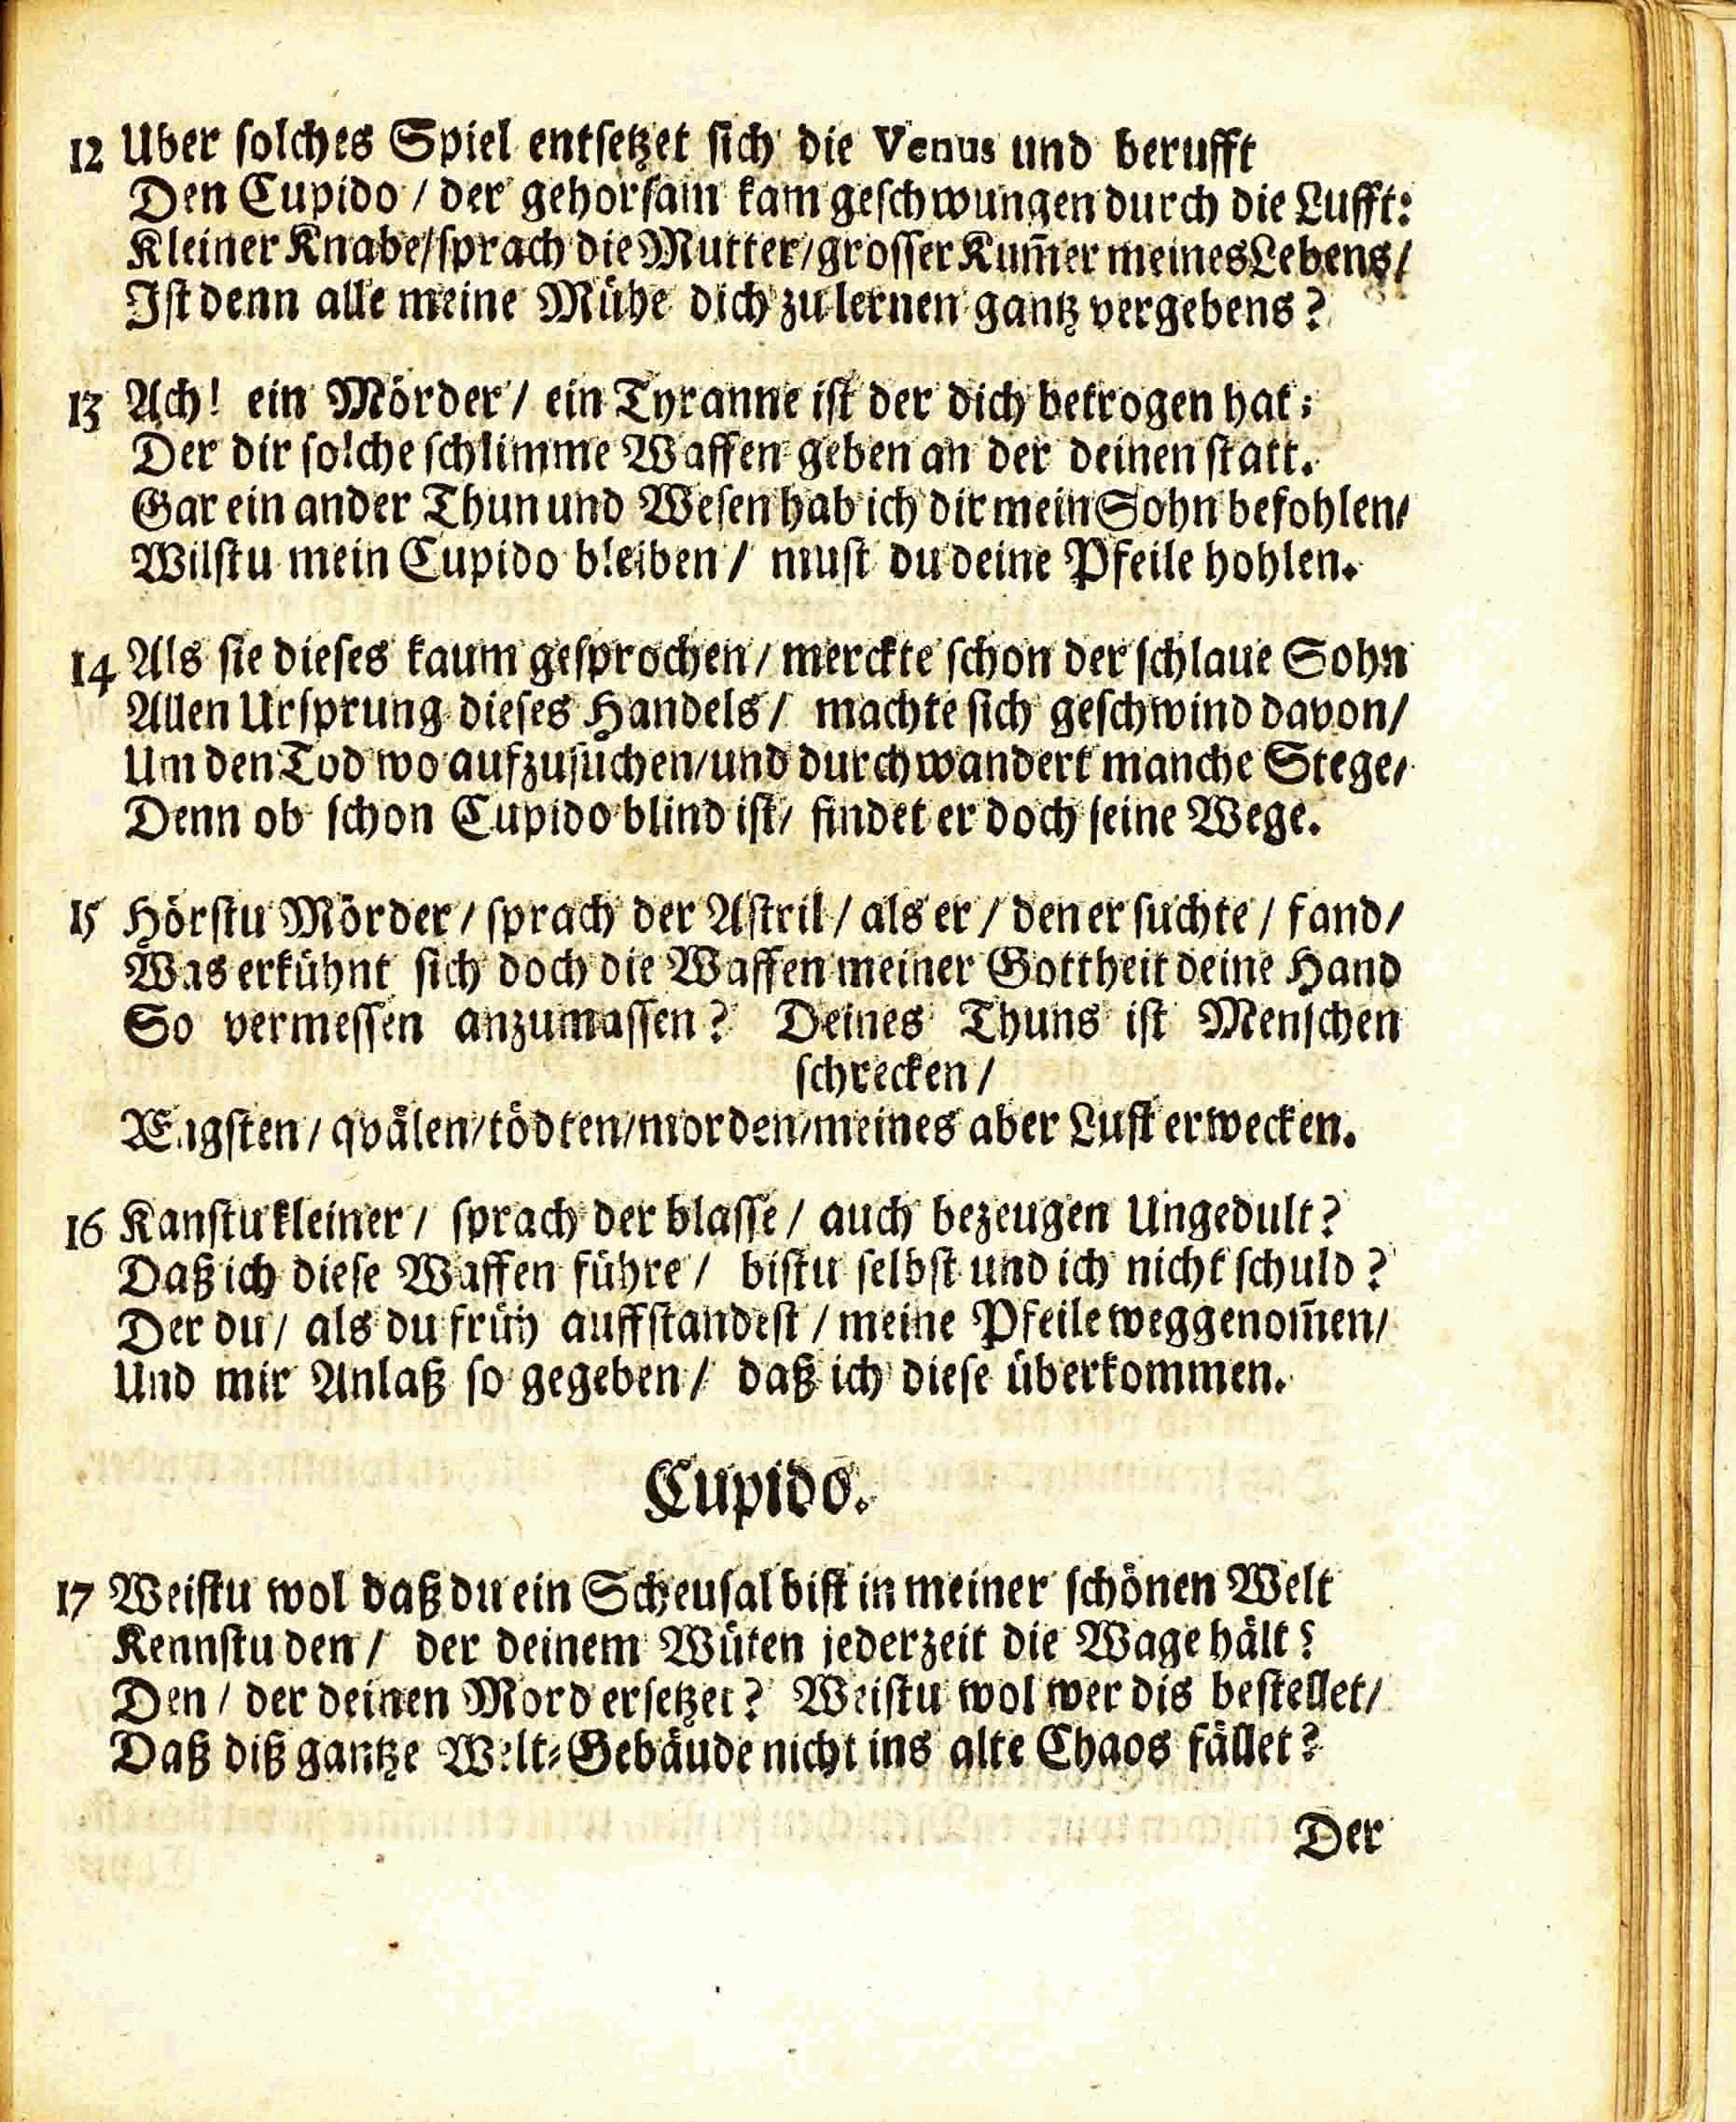 12 Uber ſolches Spiel entſetzet ſich die Venus und berufft
Den Cupido / der gehorſam kam geſchwungen durch die Lufft:
Kleiner Knabe/ ſprach die Mutter/ groſſer Kum̃er meines Lebens/
Iſt denn alle meine Mühe dich zu lernen gantz vergebens?
13 Ach! ein Mörder / ein Tyranne iſt der dich betrogen hat;
Der dir ſolche ſchlimme Waffen geben an der deinen ſtatt.
Gar ein ander Thun und Weſen hab ich dir mein Sohn befohlen/
Wilſtu mein Cupido bleiben / muſt du deine Pfeile hohlen.
14 Als ſie dieſes kaum geſprochen / merckte ſchon der ſchlaue Sohn
Allen Urſprung dieſes Handels / machte ſich geſchwind davon/
Um den Tod wo aufzuſuchen/ und durchwandert manche Stege/
Denn ob ſchon Cupido blind iſt/ findet er doch ſeine Wege.
15 Hörſtu Mörder / ſprach der Aſtril / als er / den er ſuchte / fand/
Was erkühnt ſich doch die Waffen meiner Gottheit deine Hand
So vermeſſen anzumaſſen? Deines Thuns iſt Menſchen
ſchrecken /
Ængſten / qvälen/ tödten/ morden/ meines aber Luſt erwecken.
16 Kanſtu kleiner / ſprach der blaſſe / auch bezeugen Ungedult?
Daß ich dieſe Waffen führe / biſtu ſelbſt und ich nicht ſchuld?
Der du / als du früh auffſtandeſt / meine Pfeile weggenom̃en/
Und mir Anlaß ſo gegeben / daß ich dieſe überkommen.
Cupido.
17 Weiſtu wol daß du ein Scheuſal biſt in meiner ſchönen Welt
Kennſtu den / der deinem Wüten jederzeit die Wage hält?
Den / der deinen Mord erſetzet? Weiſtu wol wer dis beſtellet/
Daß diß gantze Welt⸗Gebäude nicht ins alte Chaos fället?
Der